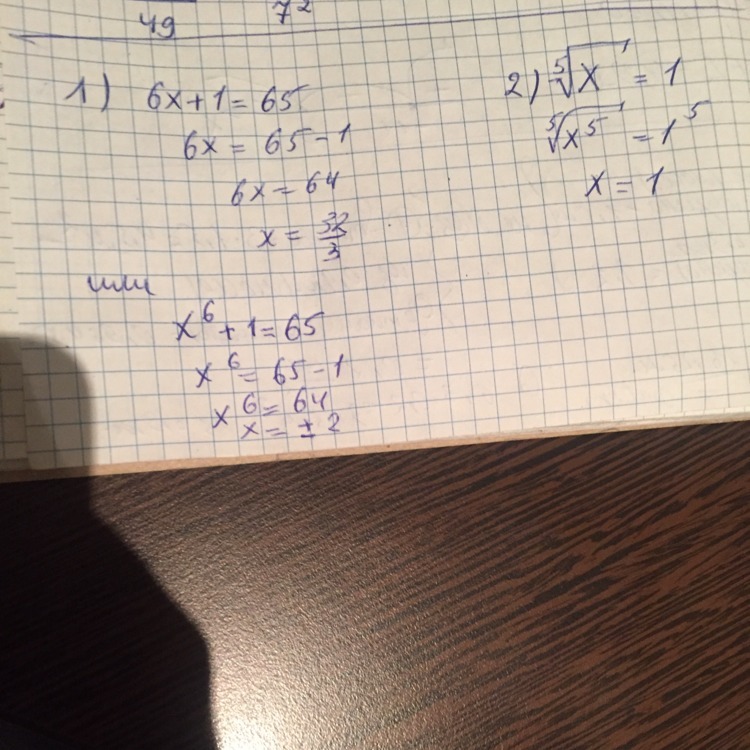 49 7²
1) 6x+1=65
6x = 65-1
6x = 64
x = 32/3
или
x⁶+1=65
x⁶ = 65-1
x⁶ = 64
x = ±2
2) ⁵√x = 1
⁵√x⁵ = 1⁵
x = 1